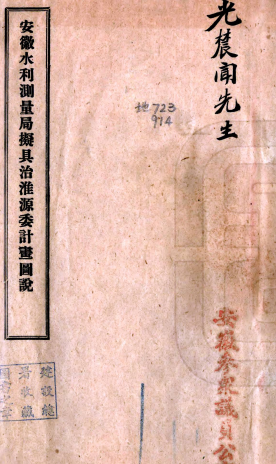 光農聞先生
安徽水利測量局擬具治淮源委計畫圖說
地723
974
安徽參眾議員公